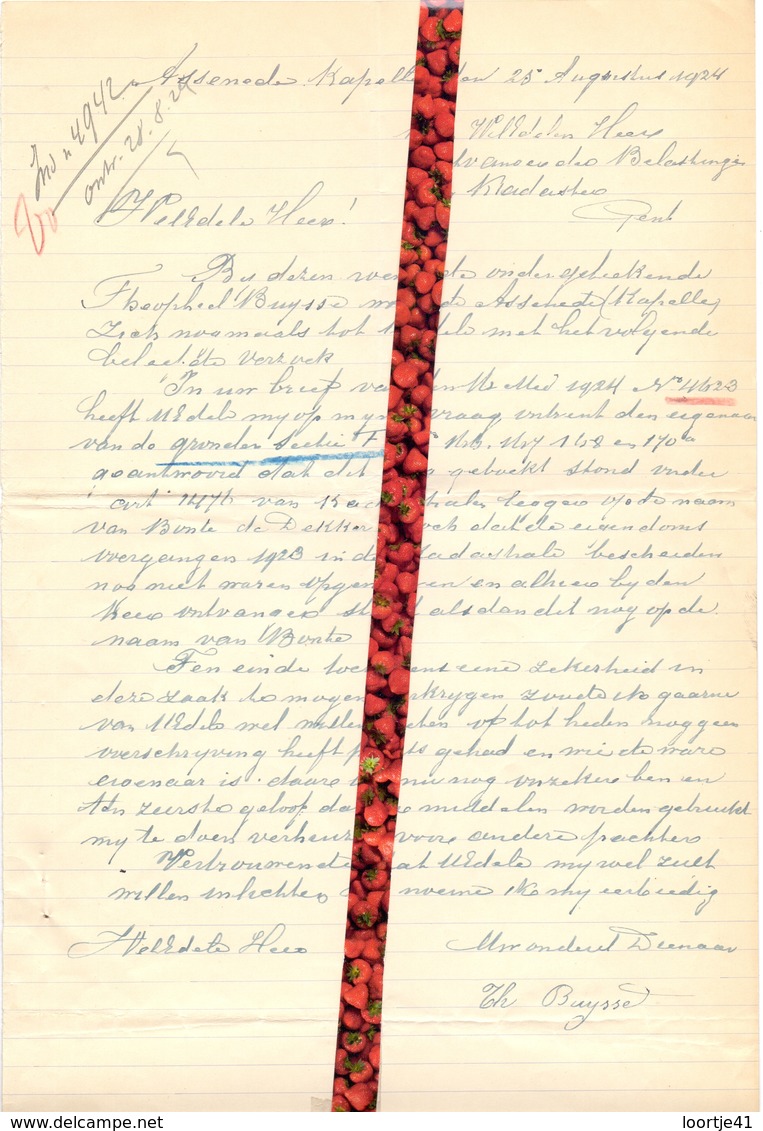 Assenede Kapelle den 25 Augustus 1924
Ind n 4942
ontv. 28.8.24
WelEdelen Heer
der Belastingen
Kadaster
Gent
WelEdele Heer!
By dezen onder geteekende
Theopheel Buysse Assenede (Kapelle)
Zich nogmaals tot met het volgende
beleefde verzoek
In uw brief van Mei 1924 No 4623
heeft UEdele my op myn vraag omtrent den eigenaar
van de gronden Sectie F 166. 167 168 en 170a
geantwoord dat dit geboekt stond onder
art 1476 van legger op de naam
van Bonte de Dekker doch dat de eigendoms
overgangen 1923 in de Kadastrale bescheiden
nog niet waren opgenomen en alhier by den
Heer ontvanger staat alsdan dit nog op de
naam van Bonte
Ten einde eene zekerheid in
deze zaak te mogen verkrygen zoude ik gaarne
van UEdele wel willen weten of tot heden nog geen
overschryving heeft plaats gehad en wie de ware
eigenaar is. daar ik nu nog onzeker ben en
ten zeerste geloof dat middelen worden gebruikt
my te doen verhuizen voor andere pachters
Vertrouwende dat UEdele my wel zult
willen inlichten noeme ik my eerbiedig
WelEdele Heer Uw onderd Dienaar
Th Buysse
loortje41